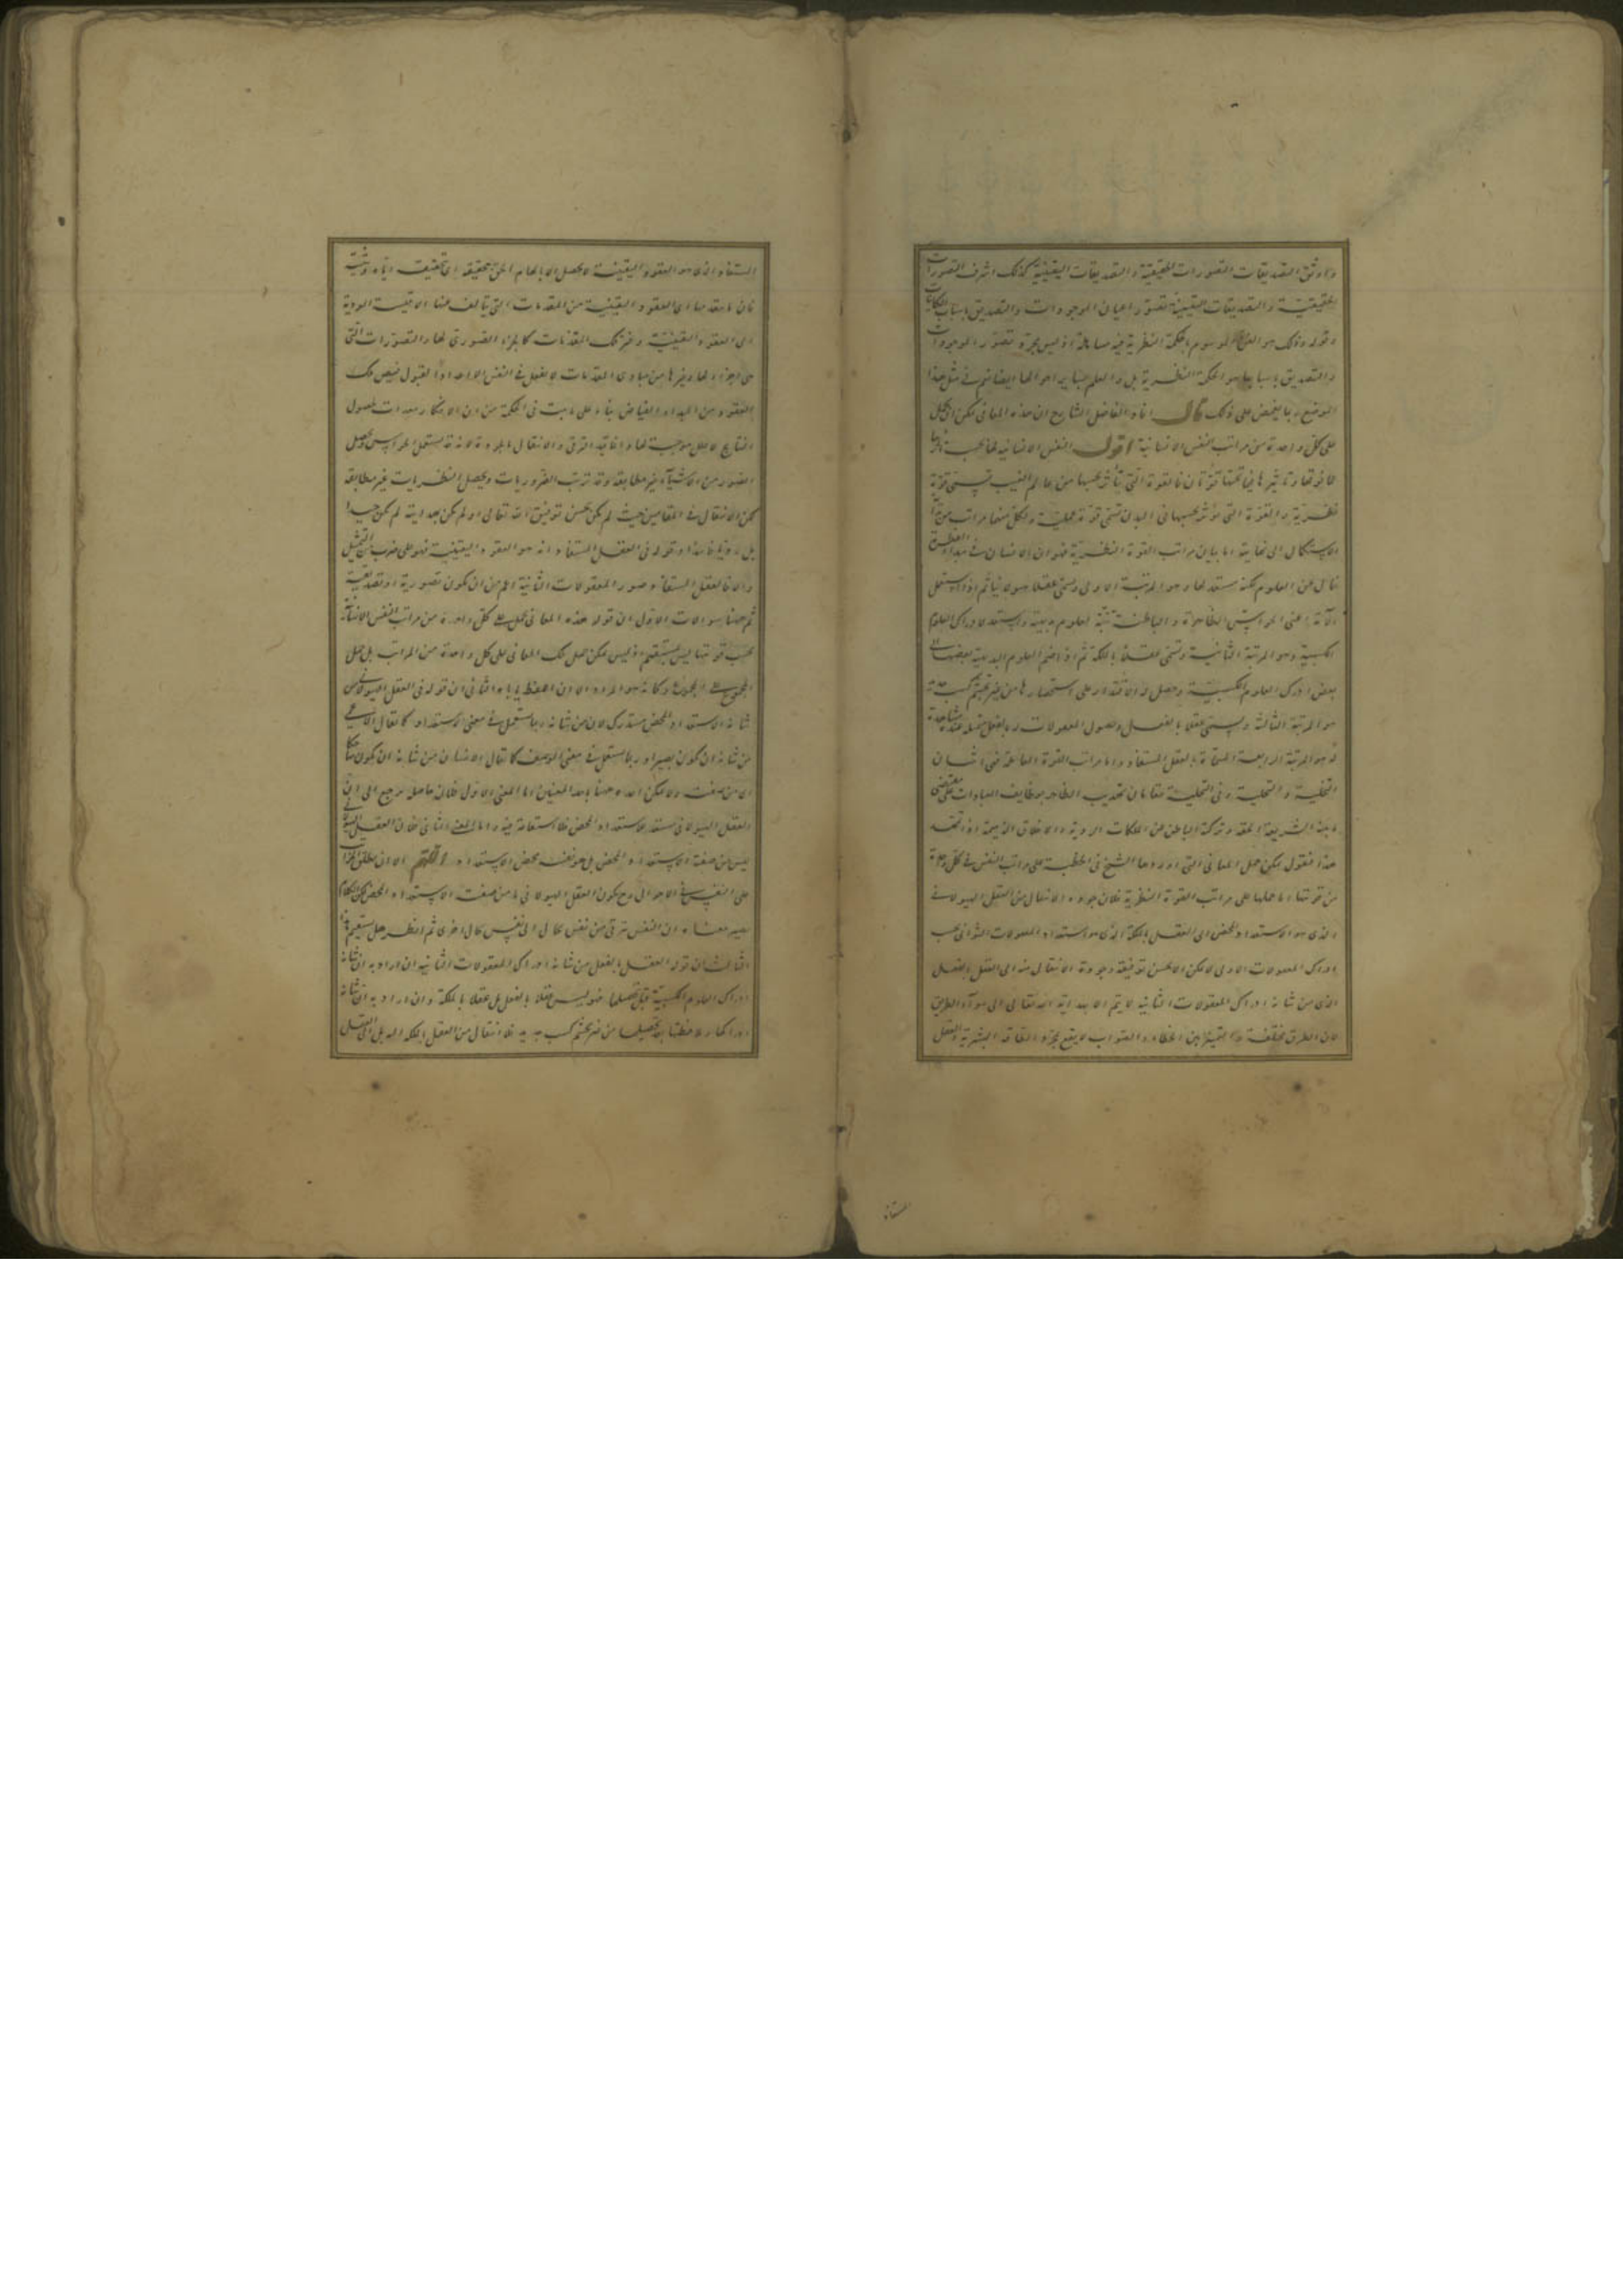 واوثق التصديقات التصورات الحقيقية والتصديقات اليقينية كذلك اشرف التصورات
الحقيقية والتصديقات اليقينية تصور اعيان الموجودات والتصديق باسباب الكائنات
وقوله وذلك هو العلم الموسوم بالحكمة النظرية فيه مساهلة اذ ليس مجرد تصور الموجودات
والتصديق باسبابها هو الحكمة النظرية بل والعلم بساير احوالها ايضا نعم في مثل هذا
الموضع ربما يقتصر على ذلك قال افاد الفاضل الشارح ان هذه المعاني يمكن ان يحمل
على كل واحدة من مراتب النفس الانسانية اقول النفس الانسانية لها بحسب تأثرها
عما فوقها وتأثيرها فيما تحتها قوتان فالقوة التي تتأثر بحسبها من عالم الغيب تسمى قوة
نظرية والقوة التي تؤثر بحسبها في البدن تسمى قوة عملية ولكل منهما مراتب من
الاستكمال الى نهايته اما بيان مراتب القوة النظرية فهو ان الانسان في مبدأ الفطرة
خال عن العلوم لكنه مستعد لها وهو المرتبة الاولى ويسمى عقلا هيولانيا ثم اذا استعمل
آلاته اعني الحواس الظاهرة والباطنة علوم بديهية واستعد لادراك العلوم
الكسبية وهو المرتبة الثانية وتسمى عقلا بالملكة ثم اذا انضم العلوم البديهية بعضها الى
بعض ادرك العلوم الكسبية وحصل له الاقتدار على استحضارها من غير تجشم كسب جديد
هو المرتبة الثالثة ويسمى عقلا بالفعل وحصول المعقولات بالفعل
هو المرتبة الرابعة المسماة بالعقل المستفاد واما مراتب القوة العاملة فهي اثنان
التخلية والتحلية وفي التخلية مقامان تهذيب الظاهر بوظايف العبادات على مقتضى
الشريعة الحقة وتزكية الباطن عن الملكات الردية والاخلاق الذميمة اذا تمهد
هذا فنقول يمكن حمل المعاني التي اوردها الشيخ في الخطبة على مراتب النفس في كل واحدة
من قوتيها اما حملها على مراتب القوة النظرية فلان جودة الانتقال من العقل الهيولاني
الذي هو الاستعداد المحض الى العقل بالملكة الذي هو استعداد المعقولات الثواني بحسب
ادراك المعقولات الاولى لا يمكن الا بحسن توفيقه وجودة الانتقال منه الى العقل بالفعل
الذي من شانه ادراك المعقولات الثانية لا يتم الا بهداية الله تعالى الى سواء الطريق
لان الطرق مختلفة والتمييز بين الخطاء والصواب لا يقع بمجرد الطاقة البشرية والعقل
المستفاد
المستفاد الذي هو العقود اليقينية لا يحصل الا بالهام الحق بحقيقه اي تحقيقه اياه وتثبيته
فان ما بعد مبادي العقود اليقينية من المقدمات التي تتالف منها الاقيسة المودية
الى العقود اليقينية وغير تلك المقدمات كالجزء الصوري لها والتصورات التي
هي اجزاء لها وغيرها من مبادي المقدمات لا يفعل في النفس الا اعدادا لقبول فيض تلك
العقود من المبداء الفياض بناء على ما ثبت في الحكمة من ان الافكار معدات لحصول
النتايج لا علل موجبة لها وانما قيد الترقي والانتقال بالجودة لانه قد يستعمل الحواس ويحصل
الصور من الاشياء غير مطابقة وقد ترتب الضروريات ويحصل النظريات غير مطابقة
لكن الانتقال في المقامين حيث لم يكن بحسن توفيق الله تعالى او لم يكن بهدايته لم يكن جيدا
بل رديا هذا وقوله في العقل المستفاد انه هو العقود اليقينية فهو على ضرب من التمثيل
والا فالعقل المستفاد صور المعقولات الثانية اعم من ان يكون تصورية او تصديقية
ثم ههنا سوالات الاول ان قوله هذه المعاني تحمل على كل واحدة من مراتب النفس الانسانية
بحسب قوتيها ليس بمستقيم اذ ليس يمكن حمل تلك المعاني على كل واحدة من المراتب بل حمل
المجموع على المجموع وكانه هو المراد الا ان اللفظ ياباه الثاني ان قوله في العقل الهيولاني من
شانه الاستعداد المحض مستدرك لان من شانه ربما يستعمل في معنى الاستعداد كما يقال الاعمى
من شانه ان يكون بصيرا وربما يستعمل في معنى الوصف كما يقال الانسان من شانه ان يكون
اي من صفته ولا يمكن اخذه ههنا باحد المعنيين اما المعنى الاول فلان حاصله يرجع الى ان
العقل الهيولاني مستعد لاستعداد المحض فلا استقامة فيه واما المعنى الثاني فلان العقل الهيولاني
ليس من صفته الاستعداد المحض بل هو نفس محض الاستعداد اللهم الا ان يطلق المراتب
على النفس في الاحوال وح يكون العقل الهيولاني ما من صفته الاستعداد المحض لكن الكلام
يصير معناه ان النفس تترقى من نفس كمال الى نفس كمال اخرى ثم انظر هل يستقيم
الثالث ان قوله العقل بالفعل من شانه ادراك المعقولات الثانية ان اراد به ان شانه
ادراك العلوم الكسبية قبل تحصيلها فهو ليس عقلا بالفعل بل عقلا بالملكة وان اراد به ان شانه
ادراكها وملاحظتها بعد تحصيلها من غير تجشم كسب جديد فلا انتقال من العقل بالملكة اليه بل الى العقل